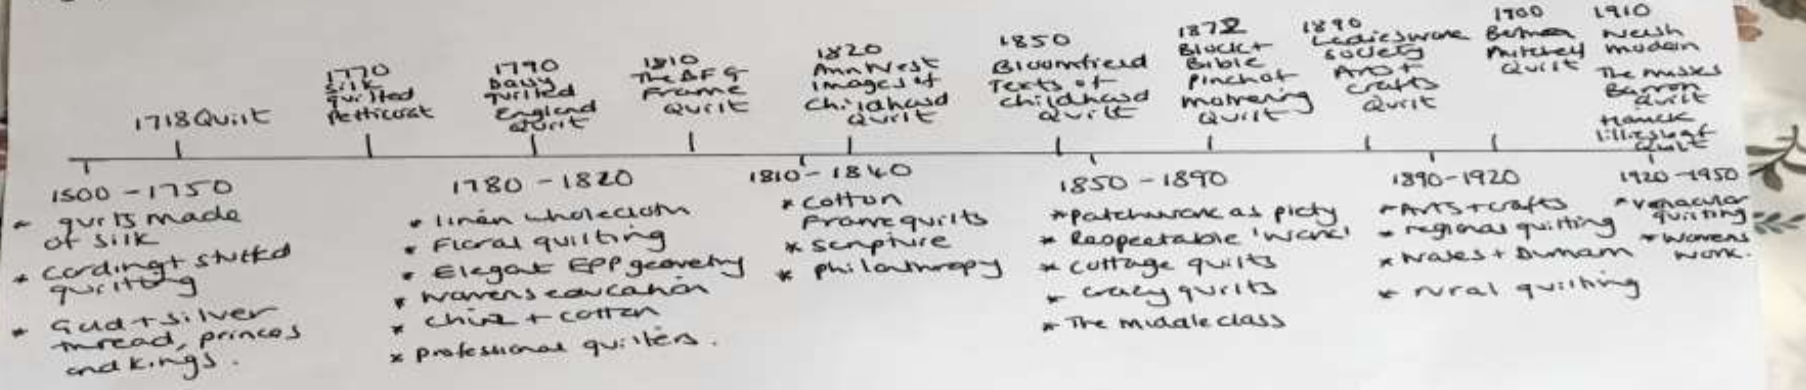 1718 Quilt
1770
Silk
quilted
Petticoat
1790
Daisy
quilted
England
Quilt
1810
The BFG
Frame
Quilt
1820
Ann West
Images of
Childhood
Quilt
1850
Bloomfield
Texts of
childhood
Quilt
1872
Block +
Bible
Pinchof
Quilt
1890
Ladies work
Society
Arts +
Crafts
Quilt
1900
Mitchell
Quilt
1910
Welsh
The Misses
Barron
Quilt
Quilt
1500 - 1750
* quilts made
of silk
* cording + stuffed
quilting
* Gold + silver
thread, princes
and kings.
1780 - 1820
* linen wholecloth
* Floral quilting
* Elegant EPP geometry
* womens education
* Chinz + cotton
* professional quilters.
1810 - 1840
* cotton
Frame quilts
* scripture
* philanthropy
1850 - 1890
* patchwork as piety
* Respectable 'work'
* cottage quilts
* crazy quilts
* The middle class
1890-1920
* Arts + crafts
* regional quilting
* Wales + Durham
* rural quilting
1920-1950
* vernacular
quilting
* womens
work.